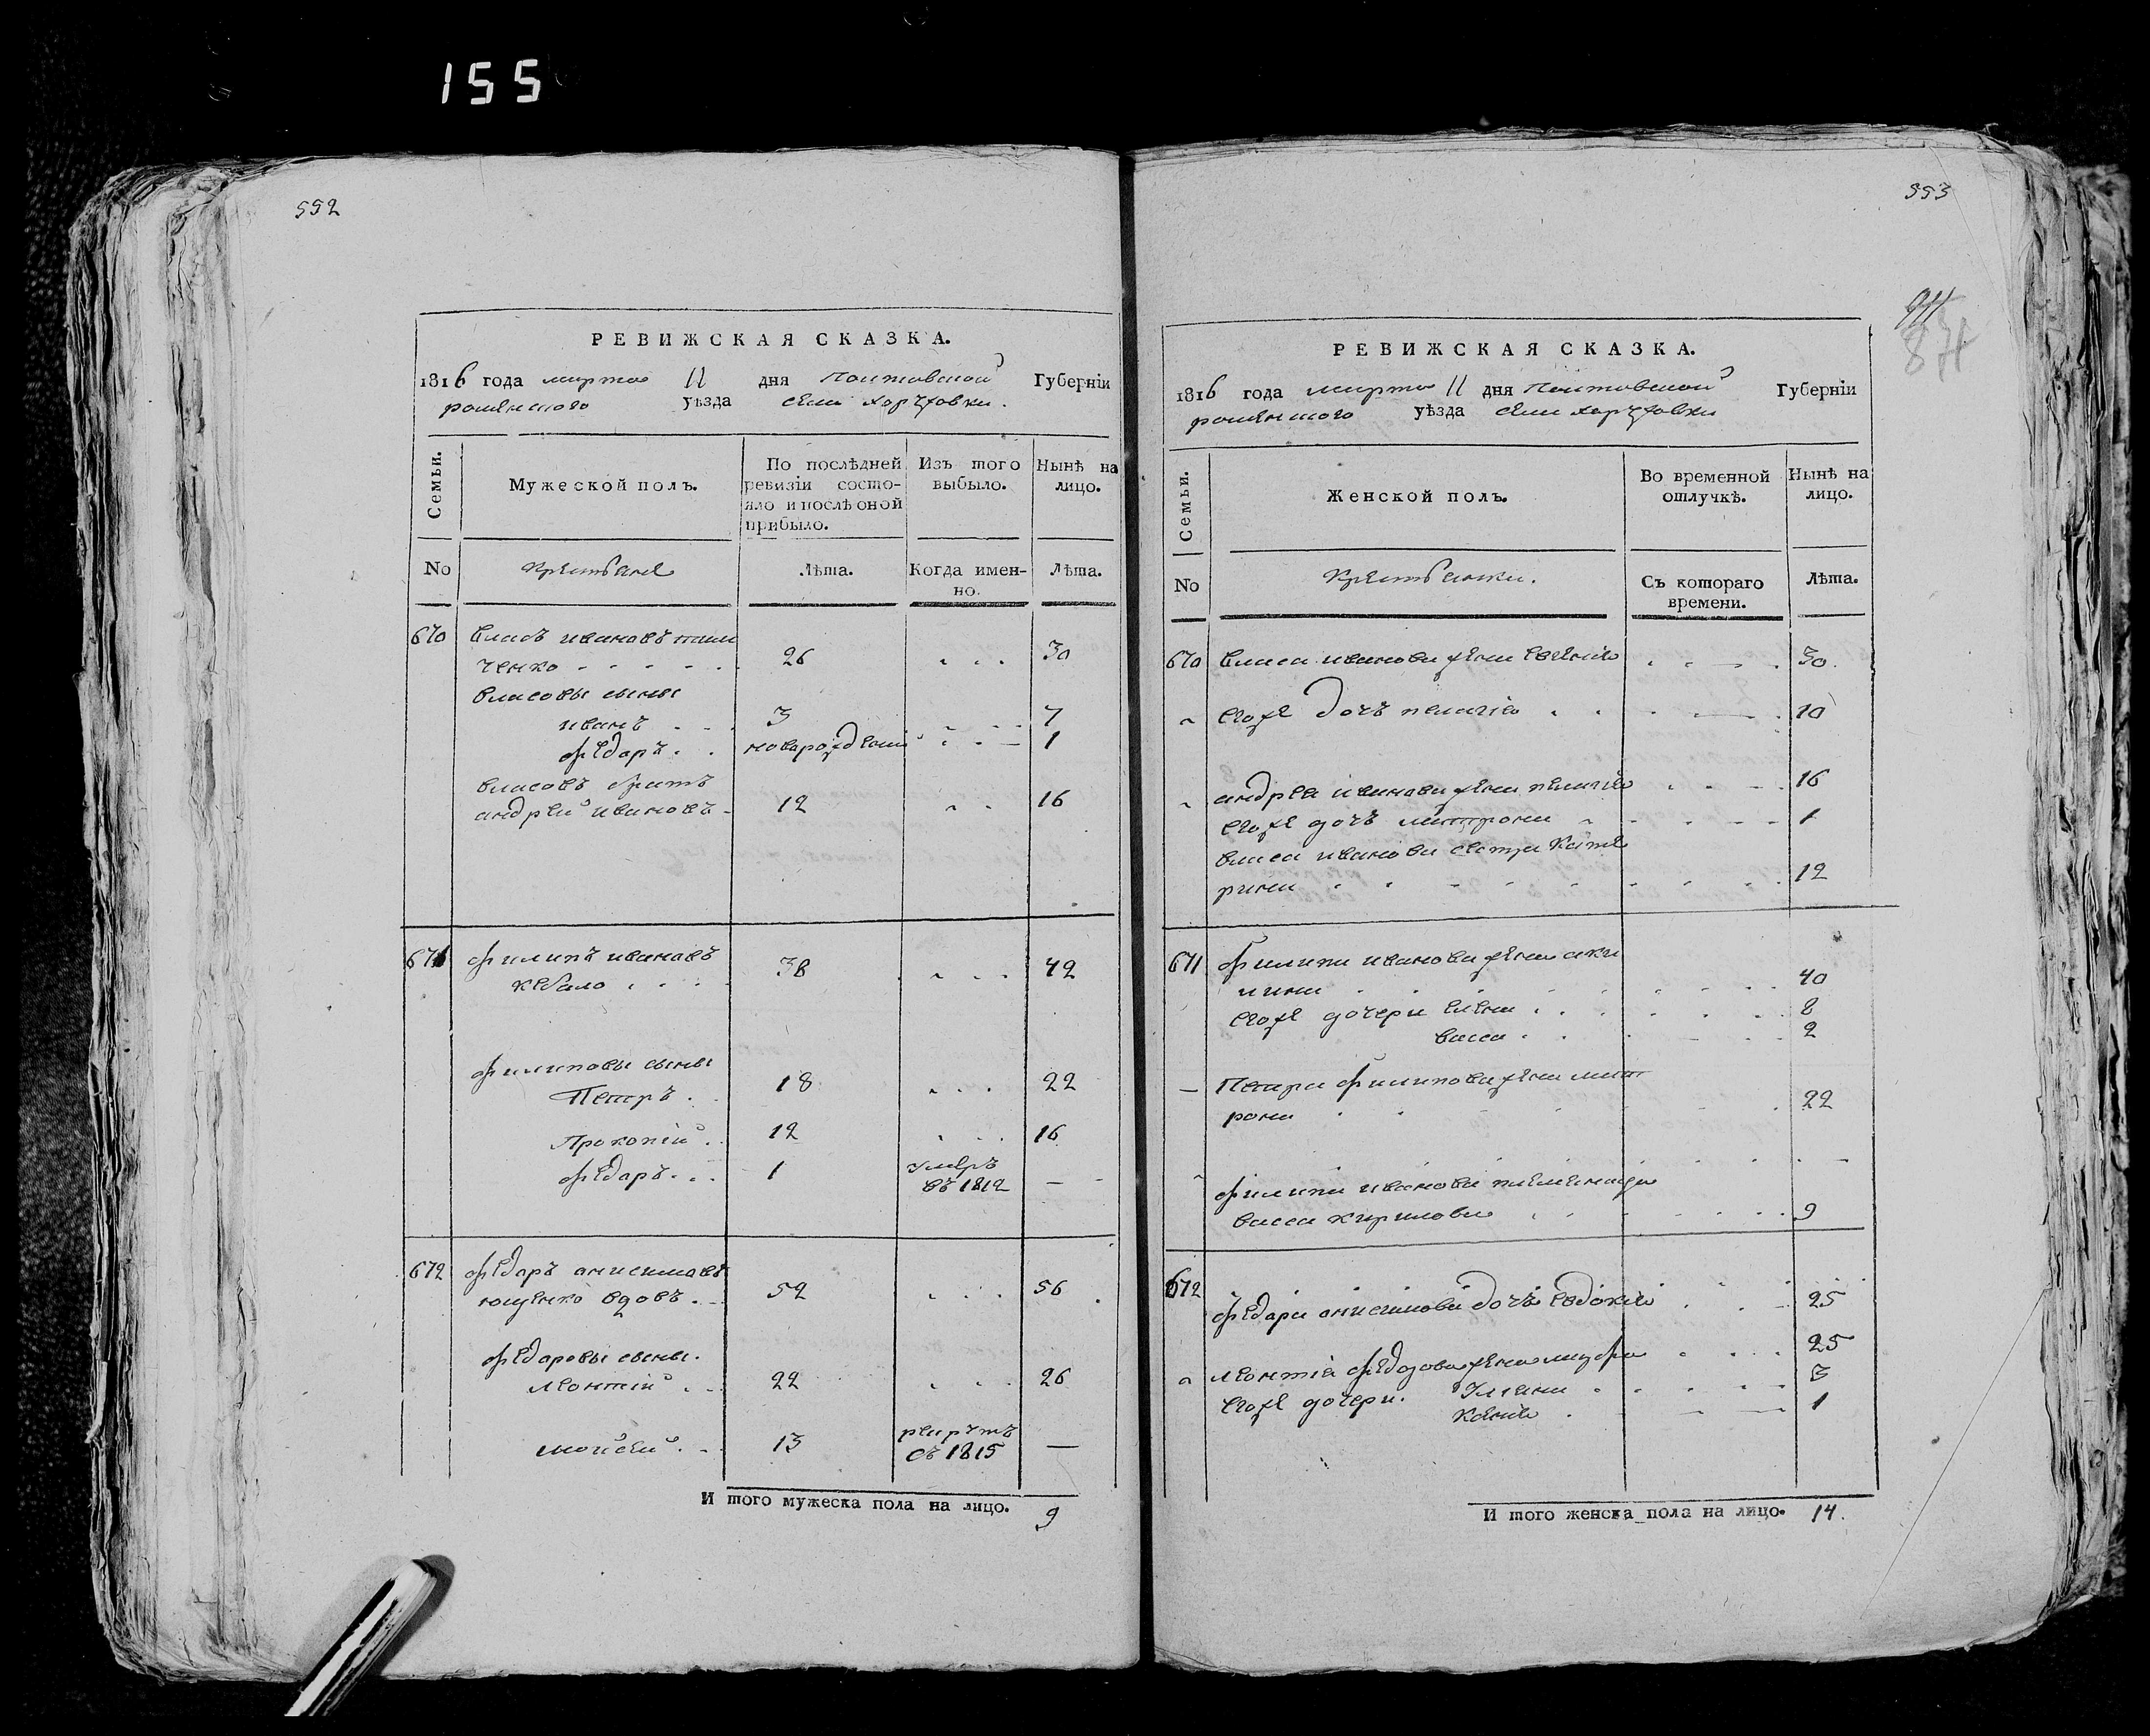 155
552
РЕВИЖСКАЯ СКАЗКА.
1816 года марта 11 дня Полтавской Губерніи
роменского уѣзда села хоружовки.
Семьи.
Мужеской полъ.
По послѣдней ревизіи состо-
яло и послѣ оной
прибыло.
Изъ того
выбыло.
Нынѣ на
лицо.
No
крестьяне
Лѣта.
Когда имен-
но.
Лѣта.
670 власъ ивановъ
ченко 26 30
власовы сыны
иванъ 3 7
федоръ новарожденны 1
власовъ братъ
андрей ивановъ 12 16
671 филипъ ивановъ
кебало 38 42
филиповы сыны
Петръ 18 22
Прокопій 12 16
федоръ 1 умеръ
въ 1812 —
672 федоръ анисимовъ
ющенко вдовъ 52 56
федоровы сыны.
леонтій 22 26
мойсей 13 рекрутъ
съ 1815 —
И того мужеска пола на лицо. 9
553
РЕВИЖСКАЯ СКАЗКА.
1816 года марта 11 дня Полтавской Губерніи
роменского уѣзда села хоружовки
Семьи.
Женской полъ.
Во временной
отлучкѣ.
Нынѣ на
лицо.
No
Крестьянки.
Съ котораго
времени.
Лѣта.
670 власа иванова жена евгенія 30.
егоже дочъ пелагія 10
андрея иванова жена пелагія 16
егоже дочъ матрона 1
власа иванова сестра кате
рина 12
671 филипа иванова жена аку
лина 40
егоже дочери елена 8
васса 2
— Петра филипова жена мат
рона 22
филипа иванова племеница
васса кирилова 9
672
федора анисимова дочъ евдокія 25
леонтія федорова жена мавра 25
егоже дочери. Уляна 3
ксенія 1
И того женска пола на лицо. 14.